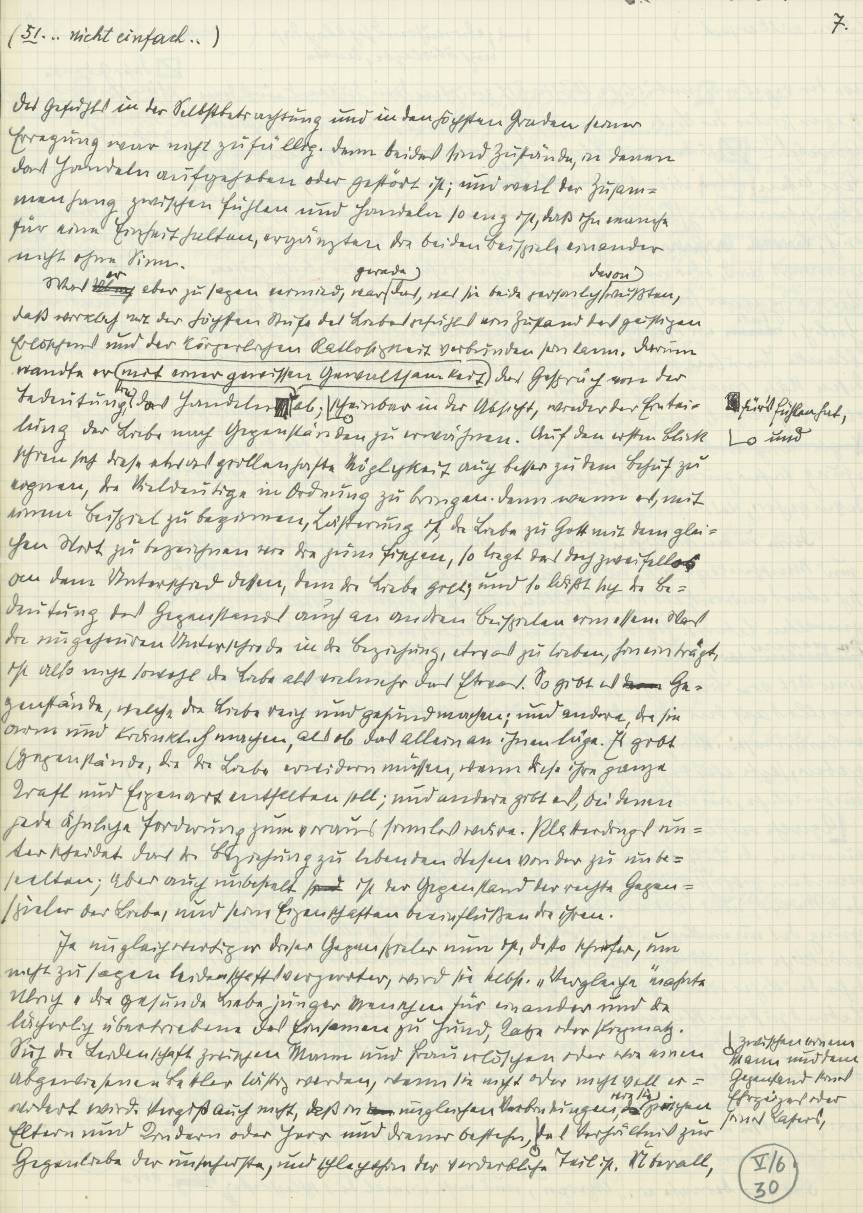 7.
(51... nicht einfach..)
des Gefühls in der Selbstbetrachtung und in den höchsten Graden seiner
Erregung war nicht zufällig. denn beides sind Zustände, in denen
das Handeln aufgehoben oder gestört ist; und weil der Zusam=
menhang zwischen Fühlen und Handeln so eng ist, daß ihn manche
für eine Einheit halten, ergänzten die beiden Beispiele einander
nicht ohne Sinn.
Was er aber zu sagen vermied, war gerade das, was sie beide persönlich davon wußten,
daß wirklich mit der höchsten Stufe des Liebesgefühls ein Zustand des geistigen
Erlöschens und der körperlichen Ratlosigkeit verbunden sein kann. Darum
wandte er mit einer gewissen Gewaltsamkeit das Gespräch von der
Bedeutung, die das Handeln fürs Fühlen hat, ab; und scheinbar in der Absicht, wieder der Eintei=
lung der Liebe nach Gegenständen zu erwähnen. Auf den ersten Blick
schien sich diese etwas grillenhafte Möglichkeit auch besser zu dem Behuf zu
eignen, die Vieldeutige in Ordnung zu bringen. denn wenn es, mit
einem Beispiel zu beginnen, Lästerung ist, die Liebe zu Gott mit dem glei=
chen Wort zu bezeichnen wie die zum Fischen, so liegt das doch zweifellos
an dem Unterschied dessen, dem die Liebe gilt; und so läßt sich die Be=
deutung des Gegenstands auch an andren Beispielen ermessen. Was
die ungeheuren Unterschiede in die Beziehung, etwas zu lieben, hineinträgt,
ist also nicht sowohl die Liebe als vielmehr das Etwas. So gibt es Ge=
genstände, welche die Liebe reich und gesund machen; und andere, die sie
arm und kränklich machen, als ob das allein an ihnen läge. Es gibt
Gegenstände, die die Liebe erwidern müssen, wenn diese ihre ganze
Kraft und Eigenart entfalten soll; und andere gibt es, bei denen
jede ähnliche Forderung zum voraus sinnlos wäre. Platterdings un=
terscheidet das die Beziehung zu lebenden Wesen von der zu unbe=
seelten; aber auch unbeseelt ist der Gegenstand der rechte Gegen=
spieler der Liebe, und seine Eigenschaften beeinflußen die ihren.
Je ungleichwertiger dieser Gegenspieler nun ist, desto schiefer, um
nicht zu sagen leidenschaftsverzerrter, wird sie selbst. „Vergleiche" mahnte
Ulrich „die gesunde Liebe junger Menschen für einander und die
lächerlich übertriebene des Einsamen zu Hund, Katze oder Piepmatz.
Sieh die Leidenschaft zwischen Mann und Frau erlöschen oder wie einen
abgewiesenen Bettler lästig werden, wenn sie nicht oder nicht voll er=
widert wird. Vergiß auch nicht, daß in ungleichen Verbindungen, wie sie zwischen
Eltern und Kindern oder Herr und Diener bestehn, zwischen einem
Mann und dem
Gegenstand seines
Ehrgeizes oder
seines Lasters,
das Verhältnis zur
Gegenliebe der unsicherste, und schlechthin der verderbliche Teil ist. Überall,
V/6
30